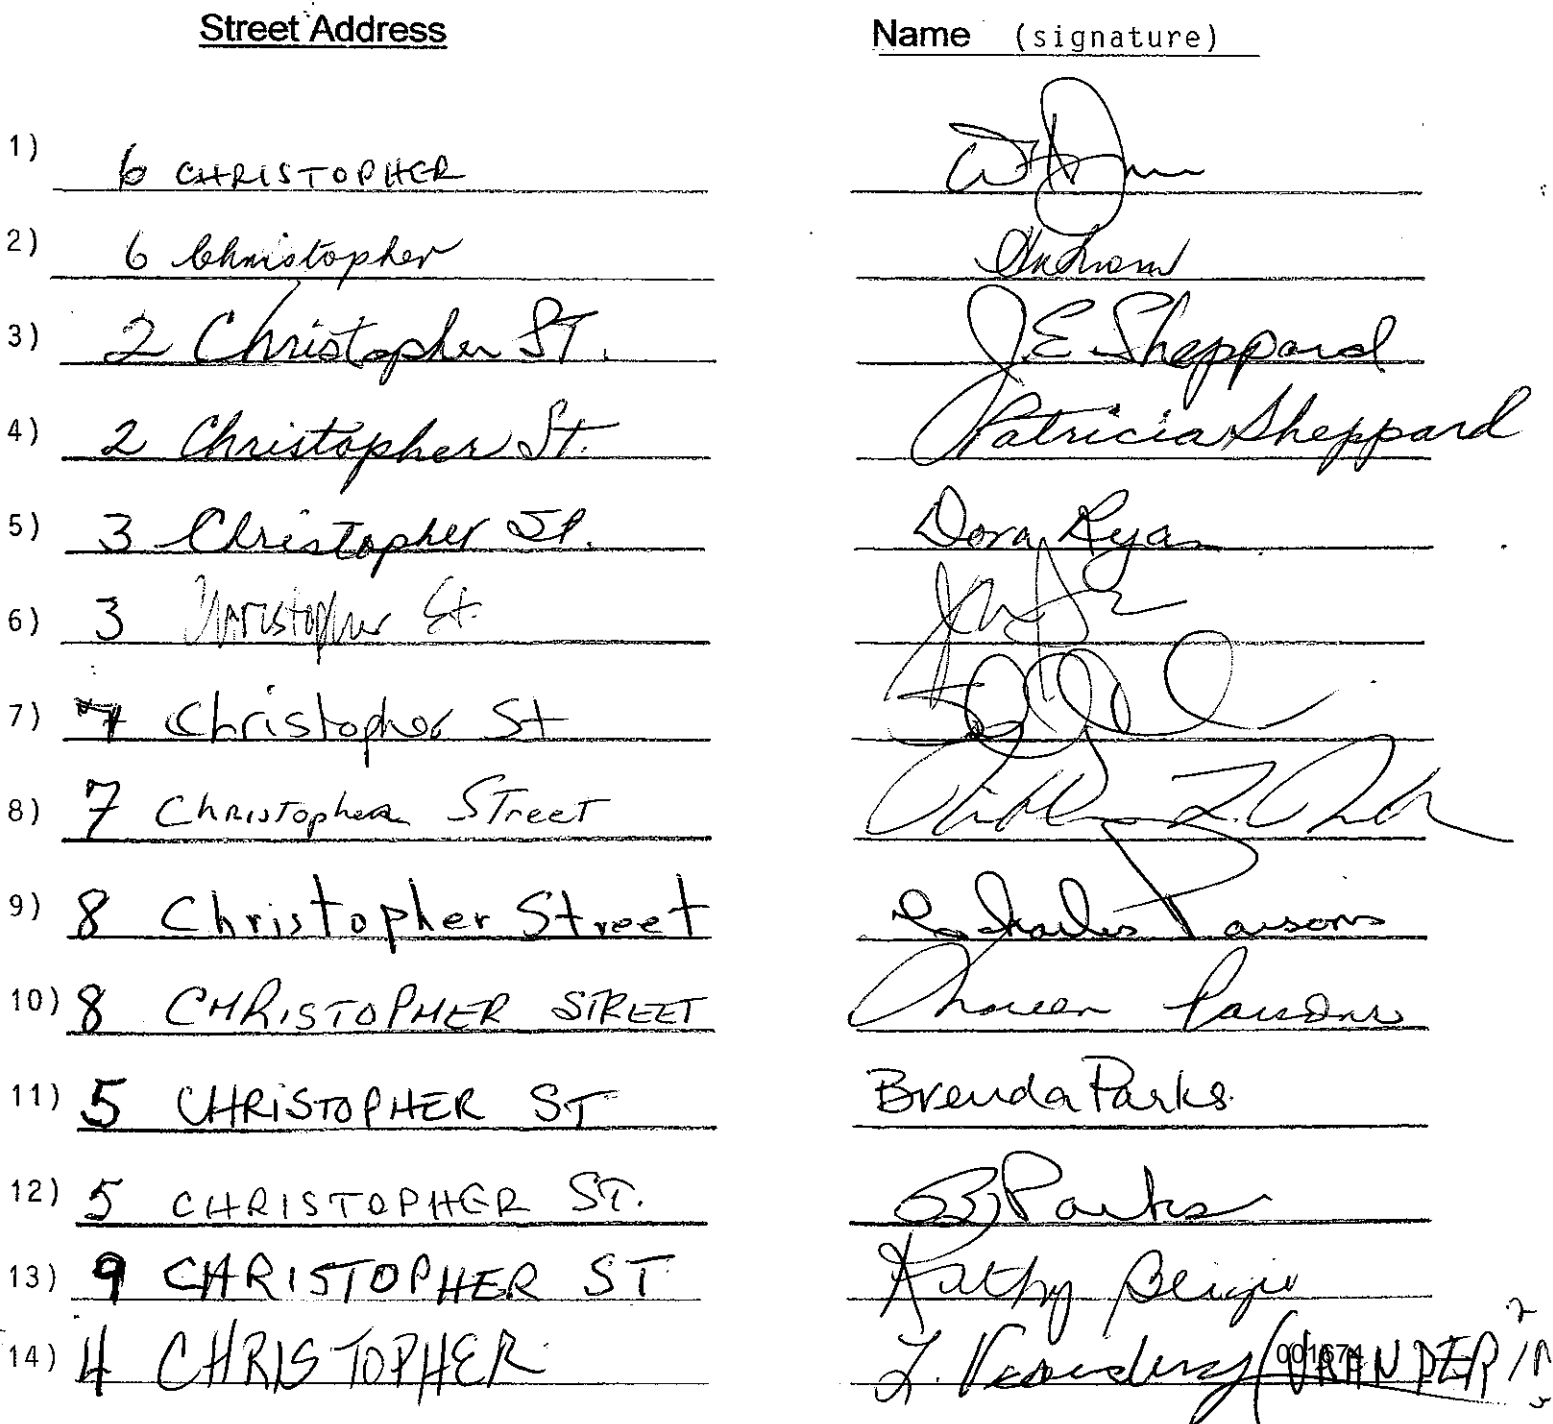 Street Address Name (signature)
1) 6 CHRISTOPHER
2) 6 Christopher
3) 2 Christopher ST. J.E. Sheppard
4) 2 Christopher St. Patricia Sheppard
5) 3 Christopher St. Dora Ryan
6) 3 Christopher St.
7) 7 Christopher St
8) 7 Christopher Street
9) 8 Christopher Street Charles Parsons
10) 8 CHRISTOPHER STREET Parsons
11) 5 CHRISTOPHER ST Brenda Parks
12) 5 CHRISTOPHER ST. B Parks
13) 9 CHRISTOPHER ST Kathy
14) 4 CHRISTOPHER L. 001674